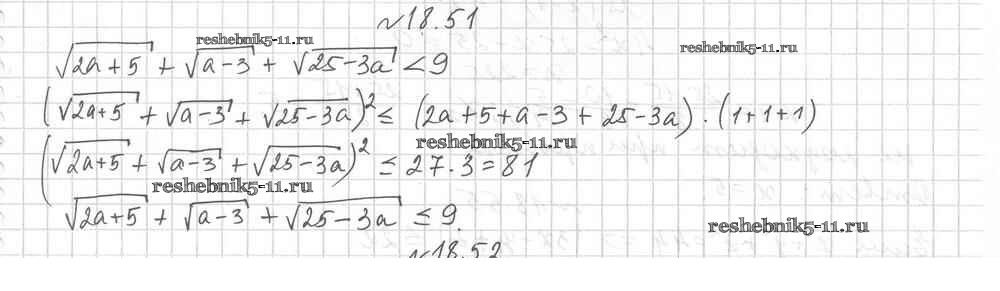 №18.51
reshebnik5-11.ru
reshebnik5-11.ru
√(2a+5) + √(a-3) + √(25-3a) < 9
(√(2a+5) + √(a-3) + √(25-3a))² ≤ (2a+5+a-3+25-3a)·(1+1+1)
reshebnik5-11.ru
(√(2a+5) + √(a-3) + √(25-3a))² ≤ 27·3=81
reshebnik5-11.ru
√(2a+5) + √(a-3) + √(25-3a) ≤ 9.
reshebnik5-11.ru
№18.52